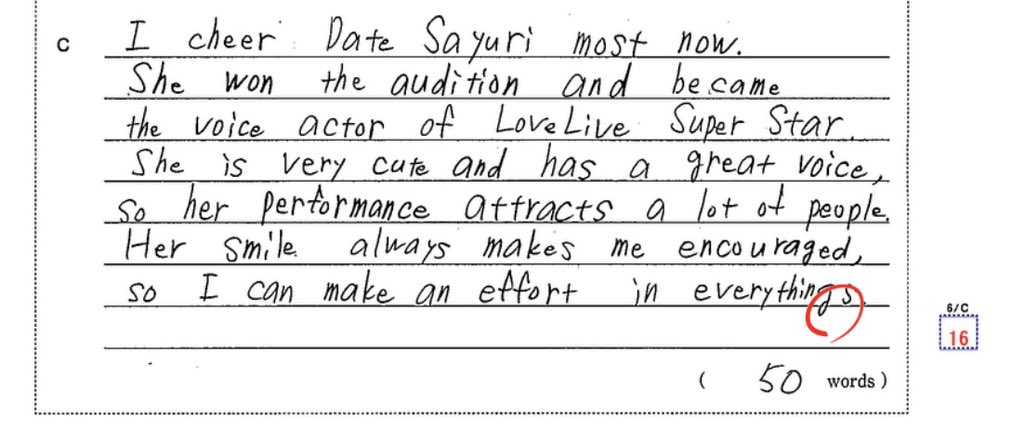 C
I cheer Date Sayuri most now.
She won the audition and became
the voice actor of LoveLive Super Star.
She is very cute and has a great voice,
so her performance attracts a lot of people.
Her smile always makes me encouraged,
so I can make an effort in everythings.
6/C
16
( 50 words )